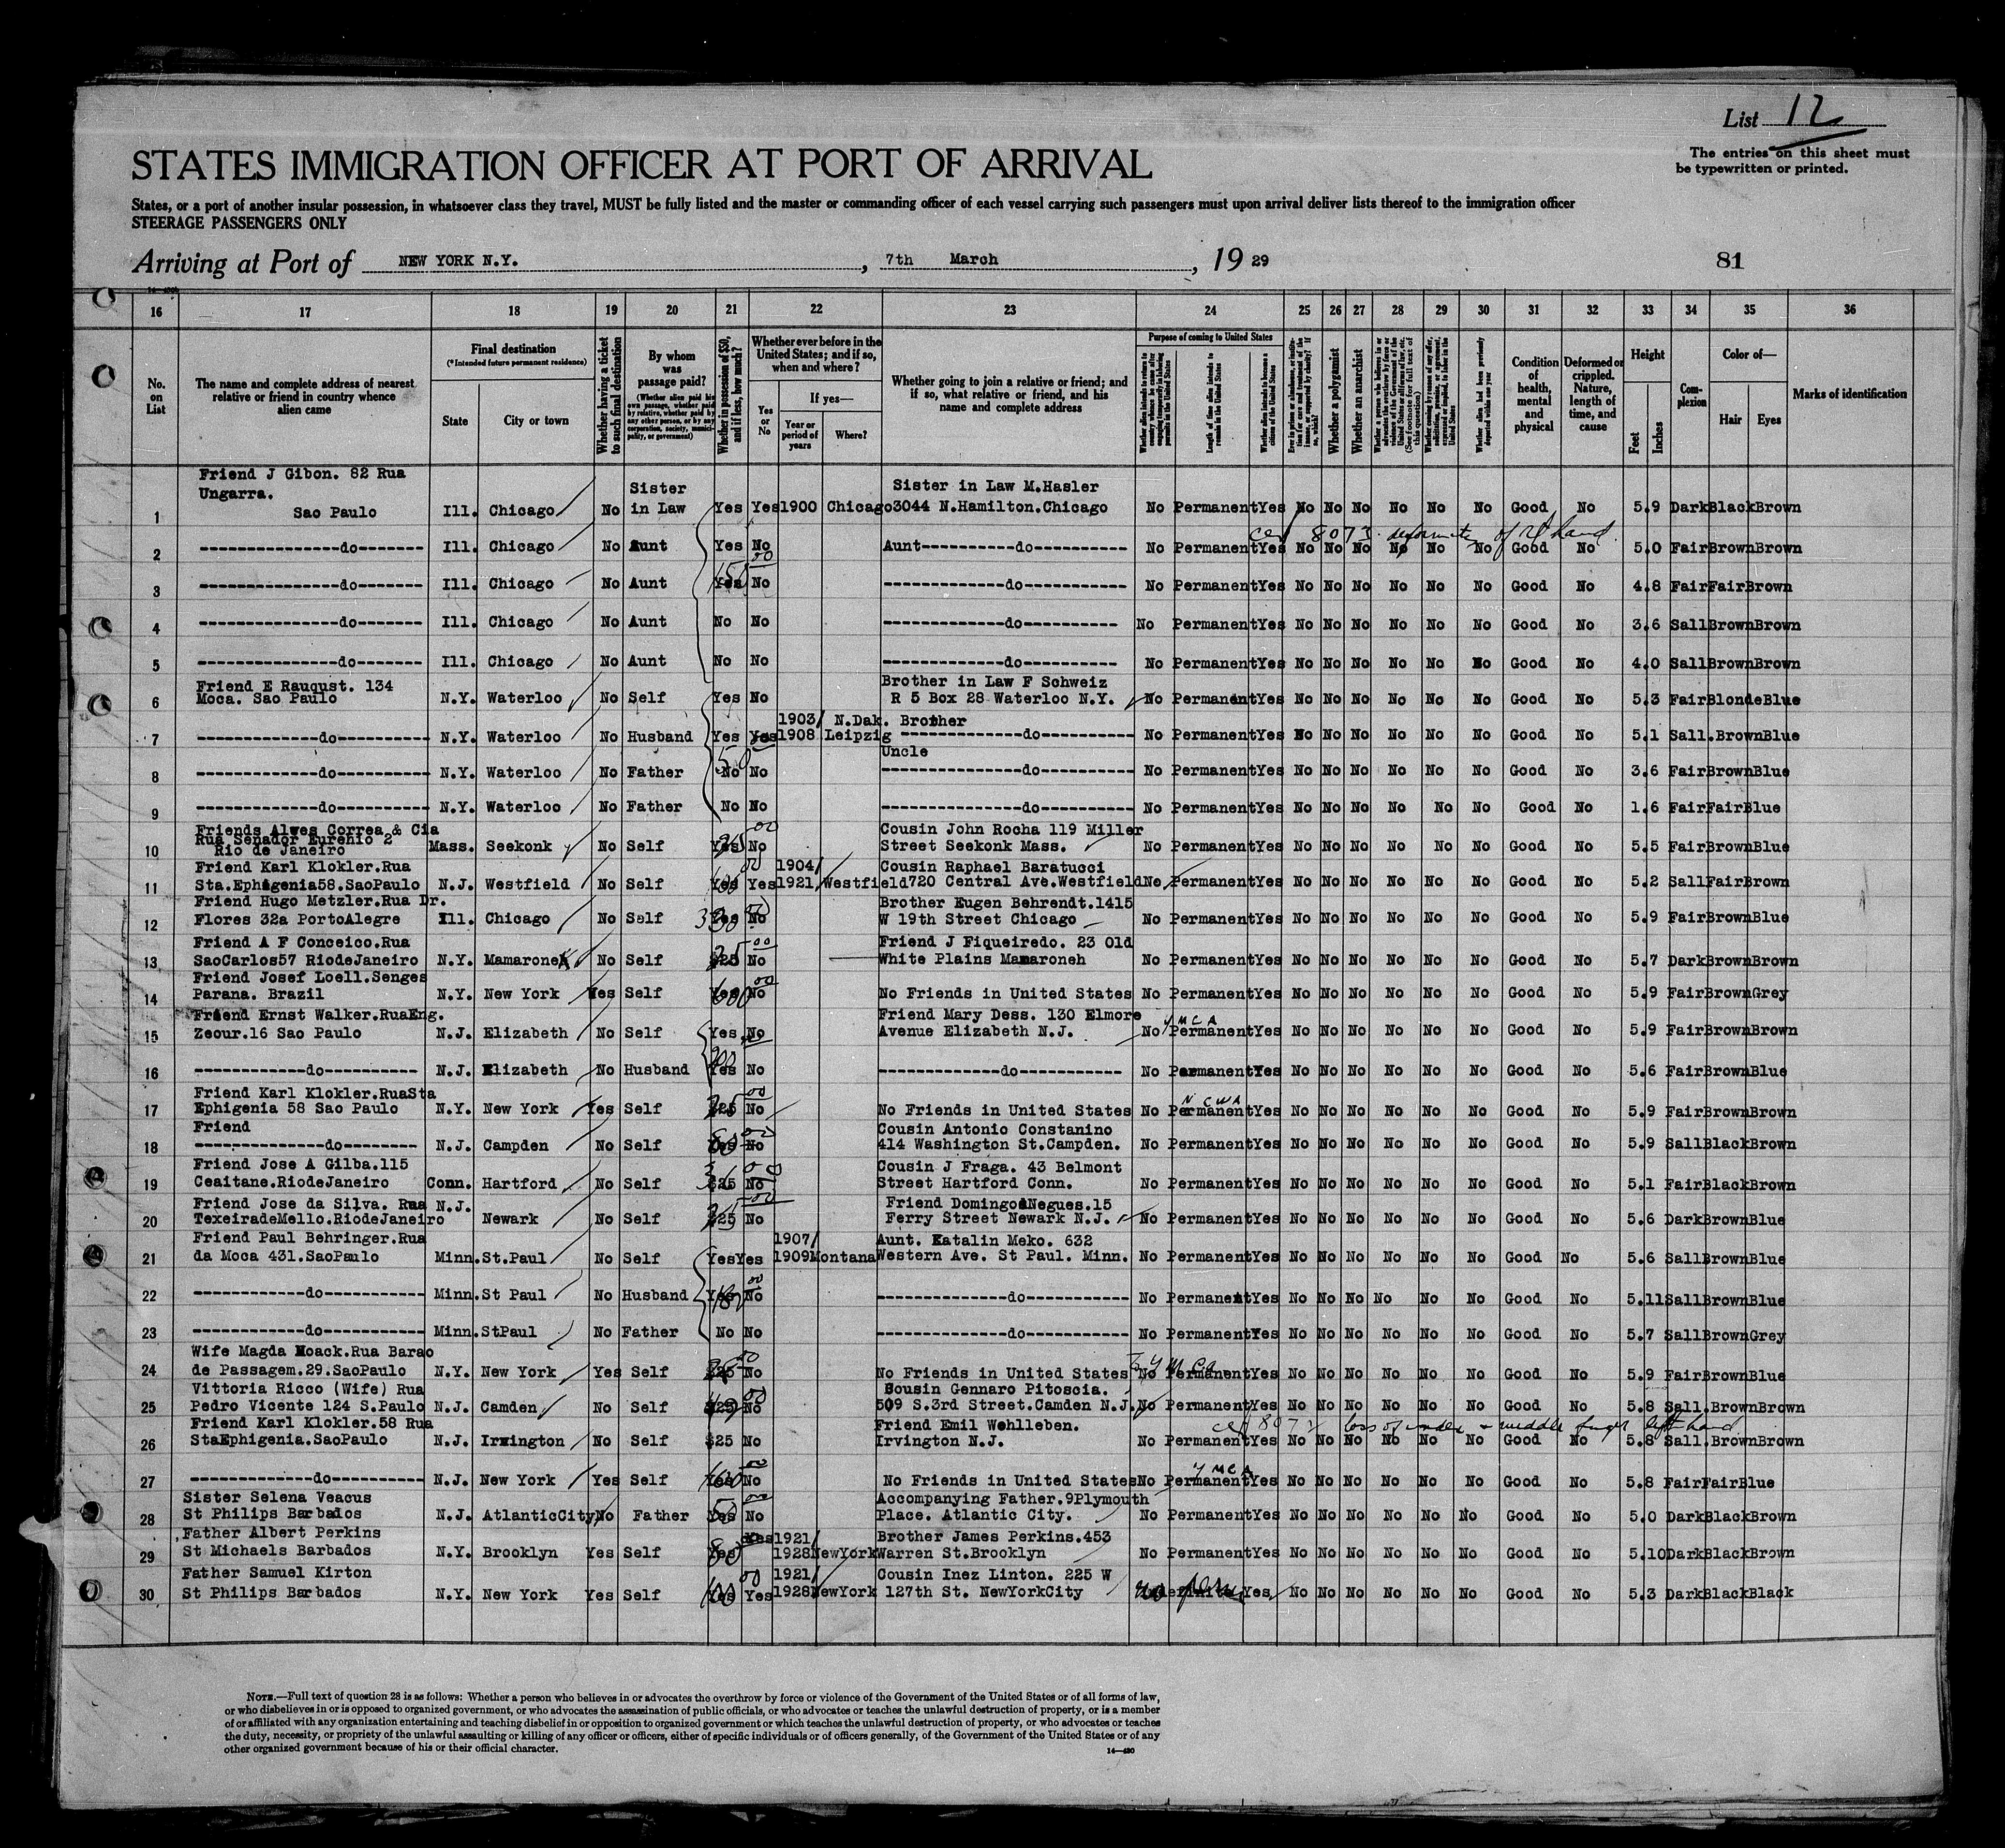 List 12
The entries on this sheet must
be typewritten or printed.
STATES IMMIGRATION OFFICER AT PORT OF ARRIVAL
States, or a port of another insular possession, in whatsoever class they travel, MUST be fully listed and the master or commanding officer of each vessel carrying such passengers must upon arrival deliver lists thereof to the immigration officer
STEERAGE PASSENGERS ONLY
Arriving at Port of NEW YORK N.Y. , 7th March , 19 29 81
16 17 18 19 20 21 22 23 24 25 26 27 28 29 30 31 32 33 34 35 36
No. on List
The name and complete address of nearest relative or friend in country whence alien came
Final destination
(*Intended future permanent residence)
State
City or town
Whether having a ticket to such final destination
By whom was passage paid?
(Whether alien paid his own passage, whether paid by relative, whether paid by any other person, or by any corporation, society, municipality, or government)
Whether in possession of $50, and if less, how much?
Whether ever before in the United States; and if so, when and where?
Yes or No
If yes—
Year or period of years
Where?
Whether going to join a relative or friend; and if so, what relative or friend, and his name and complete address
Purpose of coming to United States
Length of time alien intends to remain in the United States
Whether alien intends to become a citizen of the United States
Whether a polygamist
Whether an anarchist
Condition of health, mental and physical
Deformed or crippled. Nature, length of time, and cause
Height
Feet
Inches
Complexion
Color of—
Hair
Eyes
Marks of identification
Friend J Gibon. 82 Rua
Ungarra. Sister Sister in Law M.Hasler
1 Sao Paulo Ill. Chicago No in Law Yes Yes 1900 Chicago 3044 N.Hamilton.Chicago No Permanent Yes No No No No No No Good No 5.9 Dark Black Brown
cer 8073 deformity of rt hand
2 do Ill. Chicago No Aunt Yes No Aunt do No Permanent Yes No No No No No No Good No 5.0 Fair Brown Brown
3 do Ill. Chicago No Aunt Yes 150 00 No do No Permanent Yes No No No No No No Good No 4.8 Fair Fair Brown
4 do Ill. Chicago No Aunt No No do No Permanent Yes No No No No No No Good No 3.6 Sall Brown Brown
5 do Ill. Chicago No Aunt No No do No Permanent Yes No No No No No No Good No 4.0 Sall Brown Brown
Friend E Rauqust. 134 Brother in Law F Schweiz
6 Moca. Sao Paulo N.Y. Waterloo No Self Yes No R 5 Box 28 Waterloo N.Y. No Permanent Yes No No No No No No Good No 5.3 Fair Blonde Blue
1903/ N.Dak. Brother
7 do N.Y. Waterloo No Husband Yes Yes 1908 Leipzig do No Permanent Yes No No No No No No Good No 5.1 Sall. Brown Blue
Uncle
8 do N.Y. Waterloo No Father 50 No No do No Permanent Yes No No No No No No Good No 3.6 Fair Brown Blue
9 do N.Y. Waterloo No Father No No do No Permanent Yes No No No No No No Good No 1.6 Fair Fair Blue
Friends Alves Correa & Cia Cousin John Rocha 119 Miller
Rua Senador Eurenio 2
10 Rio de Janeiro Mass. Seekonk No Self Yes No Street Seekonk Mass. No Permanent Yes No No No No No No Good No 5.5 Fair Brown Blue
Friend Karl Klokler.Rua 1904/ Cousin Raphael Baratucci
11 Sta.Ephigenia58.SaoPaulo N.J. Westfield No Self Yes Yes 1921 Westfield 720 Central Ave.Westfield No Permanent Yes No No No No No No Good No 5.2 Sall Fair Brown
Friend Hugo Metzler.Rua Dr. Brother Eugen Behrendt.1415
12 Flores 32a PortoAlegre Ill. Chicago No Self Yes No W 19th Street Chicago No Permanent Yes No No No No No No Good No 5.9 Fair Brown Blue
Friend A F Conceico.Rua Friend J Fiqueiredo. 23 Old
13 SaoCarlos57 RiodeJaneiro N.Y. Mamaronek No Self $25 No White Plains Mamaroneh No Permanent Yes No No No No No No Good No 5.7 Dark Brown Brown
Friend Josef Loell.Senges
14 Parana. Brazil N.Y. New York Yes Self Yes 600 00 No No Friends in United States No Permanent Yes No No No No No No Good No 5.9 Fair Brown Grey
Friend Ernst Walker.RuaEng. Friend Mary Dess. 130 Elmore
15 Zeour.16 Sao Paulo N.J. Elizabeth No Self Yes No Avenue Elizabeth N.J. No YMCA Permanent Yes No No No No No No Good No 5.9 Fair Brown Brown
16 do N.J. Elizabeth No Husband Yes No do No Permanent Yes No No No No No No Good No 5.6 Fair Brown Blue
Friend Karl Klokler.RuaSta
17 Ephigenia 58 Sao Paulo N.Y. New York Yes Self $25 No No Friends in United States No NCWA Permanent Yes No No No No No No Good No 5.9 Fair Brown Brown
Friend Cousin Antonio Constanino
18 do N.J. Campden No Self Yes No 414 Washington St.Campden. No Permanent Yes No No No No No No Good No 5.9 Sall Black Brown
Friend Jose A Gilba.115 Cousin J Fraga. 43 Belmont
19 Ceaitane.RiodeJaneiro Conn. Hartford No Self $25 No Street Hartford Conn. No Permanent Yes No No No No No No Good No 5.1 Fair Black Brown
Friend Jose da Silva. Rua N.J. Friend Domingo Negues.15
20 TexeiradeMello.RiodeJaneiro Newark No Self $25 No Ferry Street Newark N.J. No Permanent Yes No No No No No No Good No 5.6 Dark Brown Blue
Friend Paul Behringer.Rua 1907/ Aunt. Katalin Meko. 632
21 da Moca 431.SaoPaulo Minn. St.Paul No Self Yes Yes 1909 Montana Western Ave. St Paul. Minn. No Permanent Yes No No No No No No Good No 5.6 Sall Brown Blue
22 do Minn. St Paul No Husband Yes No do No Permanent Yes No No No No No No Good No 5.11 Sall Brown Blue
23 do Minn. StPaul No Father No No do No Permanent Yes No No No No No No Good No 5.7 Sall Brown Grey
Wife Magda Noack.Rua Barao
24 de Passagem.29.SaoPaulo N.Y. New York Yes Self $25 No No Friends in United States No YMCA Permanent Yes No No No No No No Good No 5.9 Fair Brown Blue
Vittoria Ricco (Wife) Rua Cousin Gennaro Pitoscia.
25 Pedro Vicente 124 S.Paulo N.J. Camden No Self $25 No 509 S.3rd Street.Camden N.J. No Permanent Yes No No No No No No Good No 5.8 Sall Brown Brown
Friend Karl Klokler.58 Rua Friend Emil Wohlleben. loss of index + middle finger left hand
26 StaEphigenia.SaoPaulo N.J. Irvington No Self $25 No Irvington N.J. No Permanent Yes No No No No No No Good No 5.8 Sall. Brown Brown
27 do N.J. New York Yes Self Yes No No Friends in United States No YMCA Permanent Yes No No No No No No Good No 5.8 Fair Fair Blue
Sister Selena Veacus Accompanying Father.9Plymouth
28 St Philips Barbados N.J. AtlanticCity No Father Yes 50 00 No Place. Atlantic City. No Permanent Yes No No No No No No Good No 5.0 Dark Black Brown
Father Albert Perkins Yes 1921/ Brother James Perkins.453
29 St Michaels Barbados N.Y. Brooklyn Yes Self Yes 80 1928 NewYork Warren St.Brooklyn No Permanent Yes No No No No No No Good No 5.10 Dark Black Brown
Father Samuel Kirton 1921/ Cousin Inez Linton. 225 W
30 St Philips Barbados N.Y. New York Yes Self Yes 100 00 Yes 1928 NewYork 127th St. NewYorkCity no Indefinite perm Yes No No No No No No Good No 5.3 Dark Black Black
NOTE.—Full text of question 28 is as follows: Whether a person who believes in or advocates the overthrow by force or violence of the Government of the United States or of all forms of law,
or who disbelieves in or is opposed to organized government, or who advocates the assassination of public officials, or who advocates or teaches the unlawful destruction of property, or is a member
of or affiliated with any organization entertaining and teaching disbelief in or opposition to organized government or which teaches the unlawful destruction of property, or who advocates or teaches
the duty, necessity, or propriety of the unlawful assaulting or killing of any officer or officers, either of specific individuals or of officers generally, of the Government of the United States or of any
other organized government because of his or their official character.
14—420